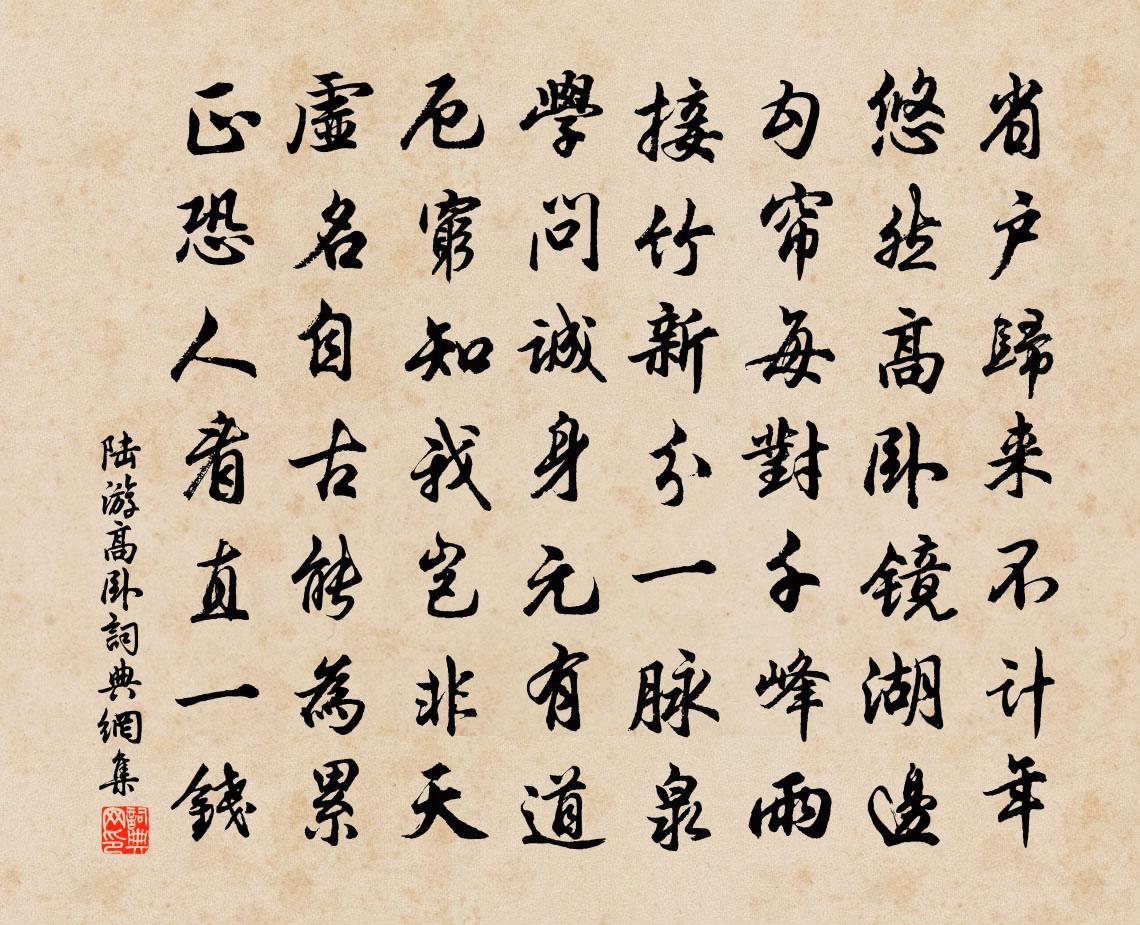 省户歸来不计年
悠然高卧镜湖邊
勾帘每對千峰雨
接竹新分一脉泉
學問誠身元有道
厄窮知我岂非天
虛名自古能為累
正恐人看直一錢
陆游高卧詞典網集
詞典网印